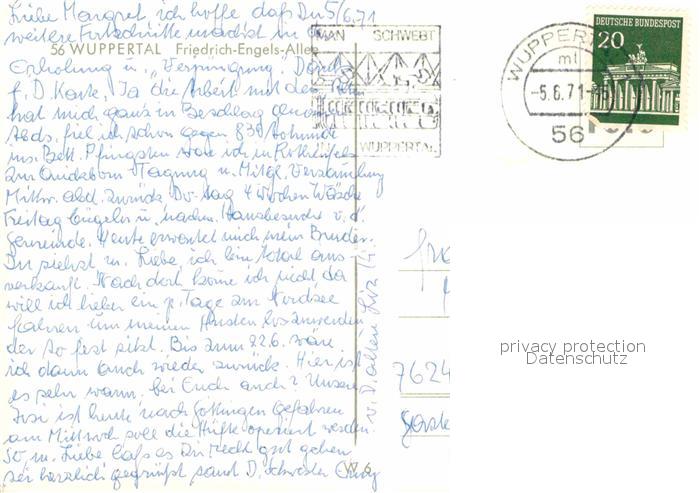 Liebe Margret, ich hoffe daß Du 5/6.71
weitere Fortschritte machst in d.
56 WUPPERTAL Friedrich-Engels-Allee
Erholung u. Verjüngung. Dank
f. D. Karte. Ja die Arbeit mit der
hat mich ganz in Beschlag
Abds. fiel ich schon gegen 8 30 todmüde
ins Bett. Pfingsten war ich in Rothenfels
zur Quickborn Tagung u. Mitgl. Versammlung
Mittw. abd. zurück Do-tag 4 Wochen Wäsche
Freitag bügeln u. nachm. Hausbesuche v. d.
Gemeinde. Heute erwartet mich mein Bruder.
Du siehst m. Liebe, ich bin total aus-
verkauft. Nach dort komme ich nicht, da
will ich lieber ein p. Tage zur Nordsee
fahren um meinen Husten loszuwerden
der so fest sitzt. Bis zum 22.6. wäre
ich dann auch wieder zurück. Hier ist
es sehr warm, bei Euch auch? Unsere
ist heute nach Göttingen gefahren
am Mittwoch soll die Hüfte operiert werden.
So m. Liebe laß es Dir recht gut gehen
sei herzlich gegrüßt samt D. Schwester
v. D. alten
W 6
MAN SCHWEBT
WUPPERTAL
WUPPERTAL
ml
-5.6.71-
56
DEUTSCHE BUNDESPOST
20
7624
privacy protection
Datenschutz